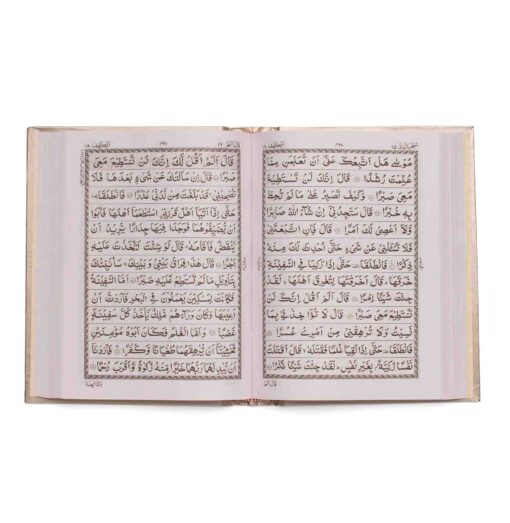 مُوْسٰى هَلْ اَتَّبِعُكَ عَلٰۤى اَنْ تُعَلِّمَنِ مِمَّا
عُلِّمْتَ رُشْدًا ۝ قَالَ اِنَّكَ لَنْ تَسْتَطِيْعَ
مَعِيَ صَبْرًا ۝ وَكَيْفَ تَصْبِرُ عَلٰى مَا لَمْ تُحِطْ
بِهٖ خُبْرًا ۝ قَالَ سَتَجِدُنِيْۤ اِنْ شَآءَ اللّٰهُ صَابِرًا
وَّلَاۤ اَعْصِيْ لَكَ اَمْرًا ۝ قَالَ فَاِنِ اتَّبَعْتَنِيْ
فَلَا تَسْـَٔلْنِيْ عَنْ شَيْءٍ حَتّٰۤى اُحْدِثَ لَكَ مِنْهُ
ذِكْرًا ۝ فَانْطَلَقَا حَتّٰۤى اِذَا رَكِبَا فِي السَّفِيْنَةِ
خَرَقَهَا قَالَ اَخَرَقْتَهَا لِتُغْرِقَ اَهْلَهَا لَقَدْ
جِئْتَ شَيْـًٔا اِمْرًا ۝ قَالَ اَلَمْ اَقُلْ اِنَّكَ لَنْ
تَسْتَطِيْعَ مَعِيَ صَبْرًا ۝ قَالَ لَا تُؤَاخِذْنِيْ بِمَا
نَسِيْتُ وَلَا تُرْهِقْنِيْ مِنْ اَمْرِيْ عُسْرًا ۝
فَانْطَلَقَا حَتّٰۤى اِذَا لَقِيَا غُلٰمًا فَقَتَلَهٗ قَالَ اَقَتَلْتَ
نَفْسًا زَكِيَّةًۢ بِغَيْرِ نَفْسٍ لَقَدْ جِئْتَ شَيْـًٔا نُّكْرًا ۝
الكهف ١٨
قال الم ١٦
قَالَ اَلَمْ اَقُلْ لَّكَ اِنَّكَ لَنْ تَسْتَطِيْعَ مَعِيَ
صَبْرًا ۝ قَالَ اِنْ سَاَلْتُكَ عَنْ شَيْءٍۢ بَعْدَهَا فَلَا
تُصٰحِبْنِيْ قَدْ بَلَغْتَ مِنْ لَّدُنِّيْ عُذْرًا ۝ فَانْطَلَقَا
حَتّٰۤى اِذَاۤ اَتَيَاۤ اَهْلَ قَرْيَةِ ِۨاسْتَطْعَمَاۤ اَهْلَهَا فَاَبَوْا
اَنْ يُّضَيِّفُوْهُمَا فَوَجَدَا فِيْهَا جِدَارًا يُّرِيْدُ اَنْ
يَّنْقَضَّ فَاَقَامَهٗ قَالَ لَوْ شِئْتَ لَتَّخَذْتَ عَلَيْهِ
اَجْرًا ۝ قَالَ هٰذَا فِرَاقُ بَيْنِيْ وَبَيْنِكَ سَاُنَبِّئُكَ
بِتَاْوِيْلِ مَا لَمْ تَسْتَطِعْ عَّلَيْهِ صَبْرًا ۝ اَمَّا السَّفِيْنَةُ
فَكَانَتْ لِمَسٰكِيْنَ يَعْمَلُوْنَ فِي الْبَحْرِ فَاَرَدْتُّ اَنْ
اَعِيْبَهَا وَكَانَ وَرَآءَهُمْ مَّلِكٌ يَّاْخُذُ كُلَّ سَفِيْنَةٍ
غَصْبًا ۝ وَاَمَّا الْغُلٰمُ فَكَانَ اَبَوٰهُ مُؤْمِنَيْنِ
فَخَشِيْنَاۤ اَنْ يُّرْهِقَهُمَا طُغْيَانًا وَّكُفْرًا ۝ فَاَرَدْنَاۤ
اَنْ يُّبْدِلَهُمَا رَبُّهُمَا خَيْرًا مِّنْهُ زَكٰوةً وَّاَقْرَبَ رُحْمًا ۝